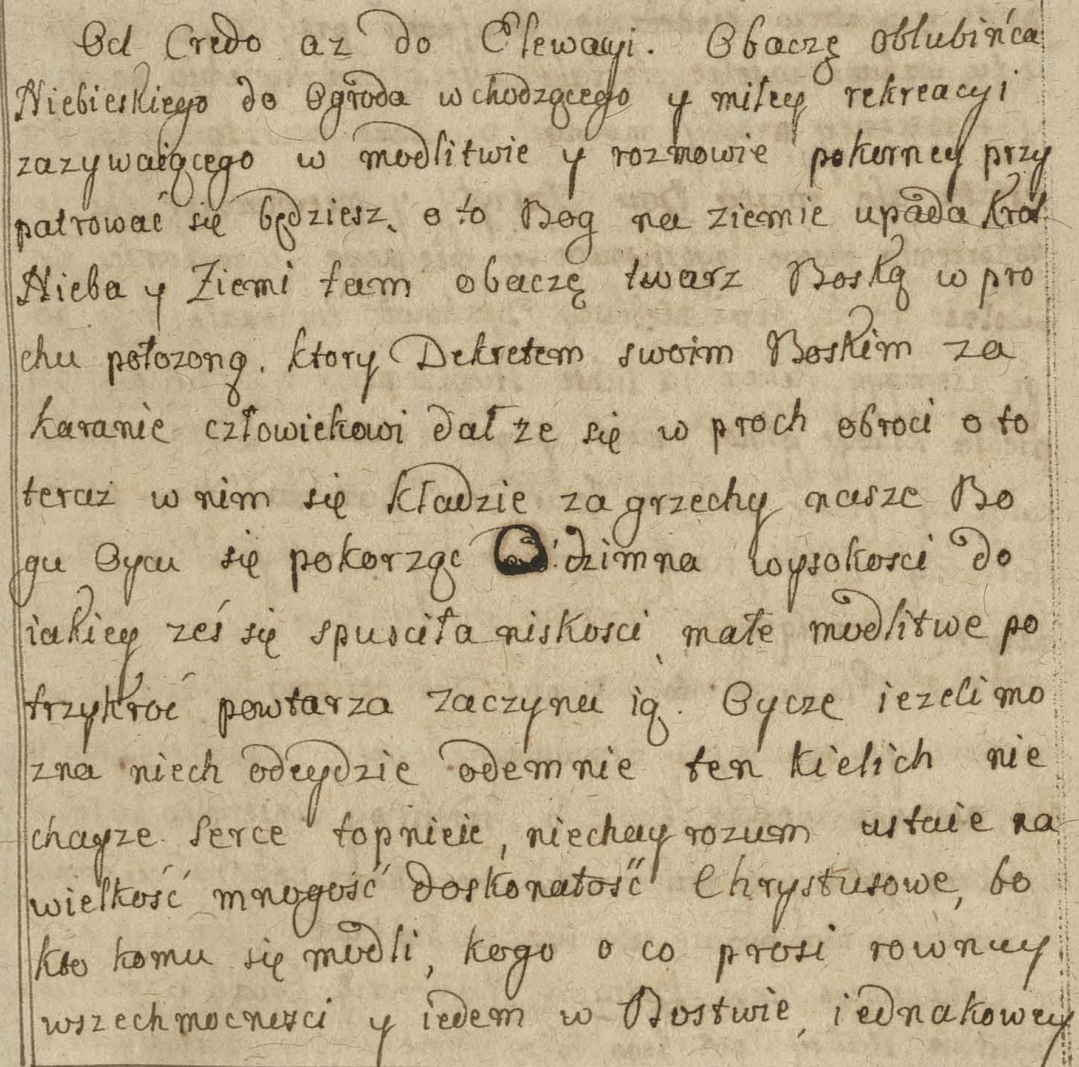 Od Credo az do Elewacyi. Obaczę oblubińca
Niebieskiego do Ogroda wchodzącego y miłey rekreacyi
zazywaiącego w modlitwie y rozmowie pokorney przy
patrować się będziesz, o to Bog na ziemie upada krol
Nieba y Ziemi tam obaczę twarz Boską w pro
chu połozoną. ktory Dekretem swoim Boskim za
karanie człowiekowi dał ze się w proch obroci o to
teraz w nim się kładzie za grzechy nasze Bo
gu Oycu się pokorząc dzimna wysokosci do
iakiey ześ się spusciła niskosci małe modlitwe po
trzykroć powtarza zaczyna ią. Oycze iezeli mo
zna niech odeydzie odemnie ten kielich nie
chayze serce topnieie, niechay rozum ustaie na
wielkość mnogość doskonałość Chrystusowe, bo
kto komu się modli, kogo o co prosi rowney
wszechmocnosci y iedem w Bostwie, iednakowey